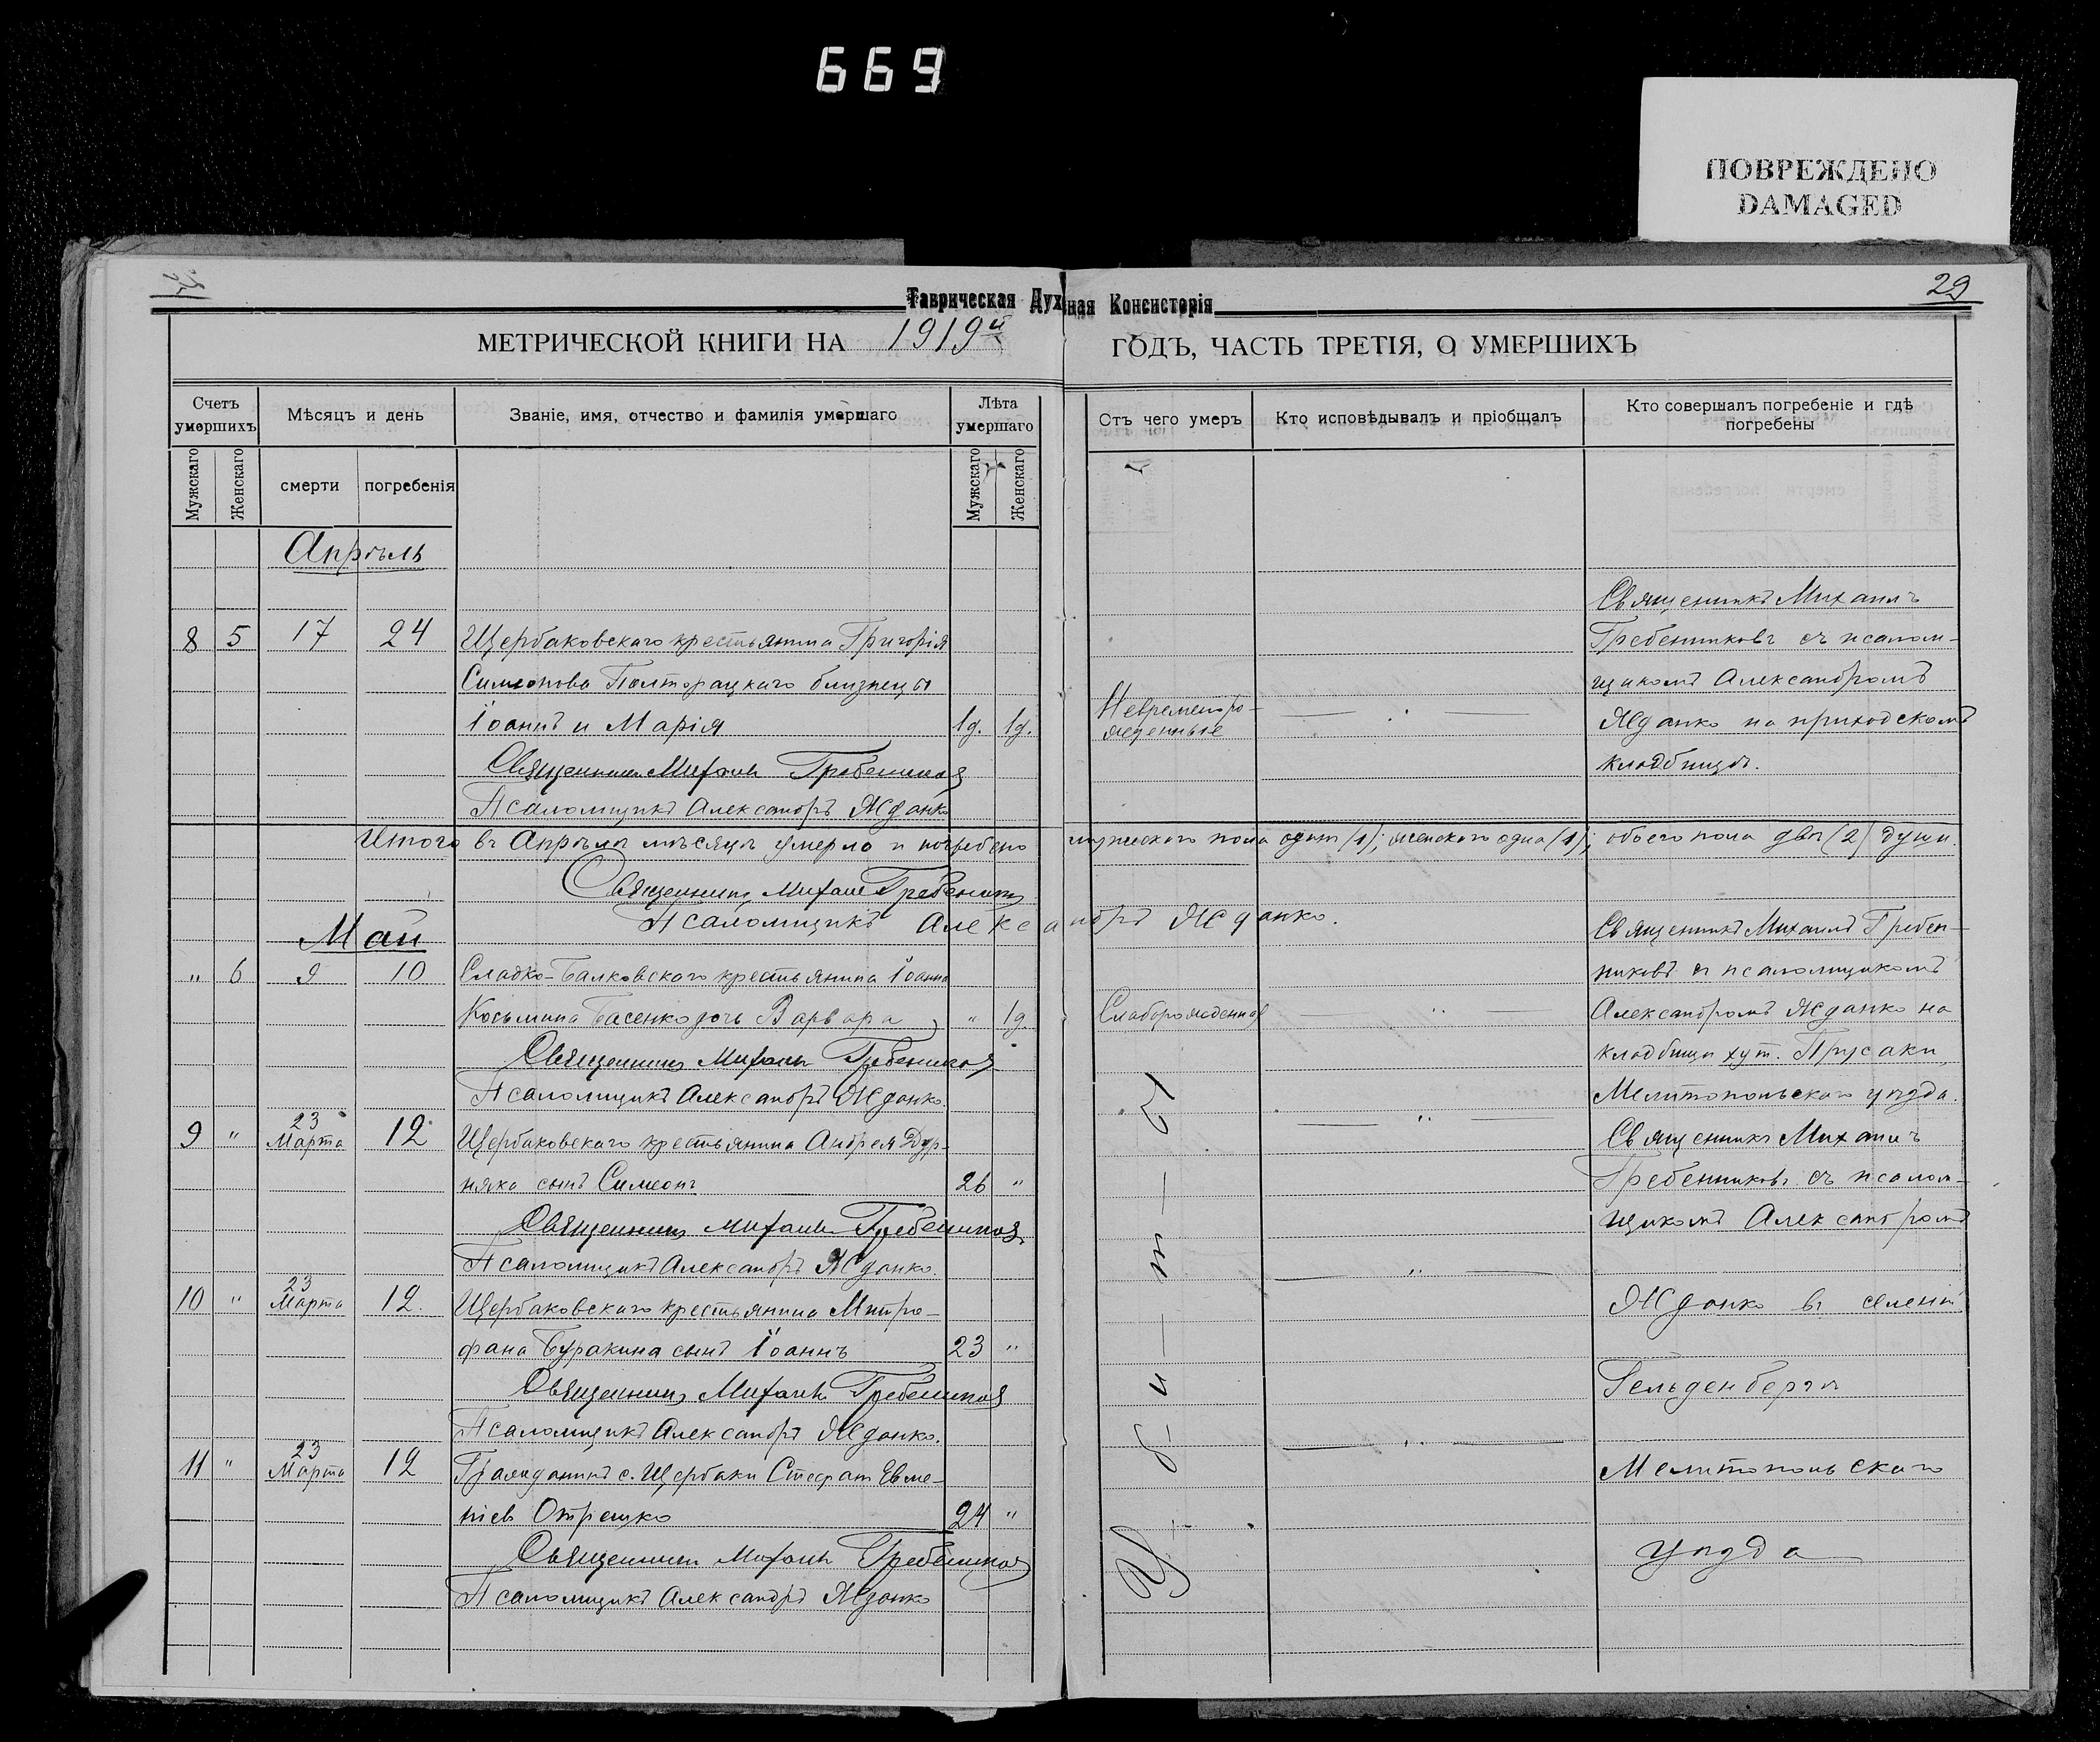 669
ПОВРЕЖДЕНО
DAMAGED
29
Таврическая Духная Консисторія
МЕТРИЧЕСКОЙ КНИГИ НА 1919й ГОДЪ, ЧАСТЬ ТРЕТІЯ, О УМЕРШИХЪ
Счетъ умершихъ
Мѣсяцъ и день
Званіе, имя, отчество и фамилія умершаго
Лѣта умершаго
Отъ чего умеръ
Кто исповѣдывалъ и пріобщалъ
Кто совершалъ погребеніе и гдѣ погребены
Мужскаго
Женскаго
смерти
погребенія
Мужскаго
Женскаго
Апрѣль
8 5 17 24 Щербаковскаго крестьянина Григорія
Симеонова Полторацкаго близнецы
Іоаннъ и Марія 1д. 1д.
Невременно-
рожденные
Священникъ Михаилъ
Гребенниковъ съ псалом-
щикомъ Александромъ
Жданко на приходскомъ
кладбищѣ.
Священникъ Михаилъ Гребенниковъ
Псаломщикъ Александръ Жданко
Итого въ Апрѣлѣ мѣсяцѣ умерло и погребено мужескаго пола одинъ (1); женскаго одна (1); обоего пола двѣ (2) души.
Священникъ Михаилъ Гребенниковъ
Псаломщикъ Александръ Жданко.
Май
" 6 9 10 Сладко-Балковскаго крестьянина Іоанна
Косьмина Басенко дочь Варвара " 1д.
Слаборожденная
Священникъ Михаилъ Гребен-
никовъ съ псаломщикомъ
Александромъ Жданко на
кладбищѣ хут. Прусаки
Мелитопольскаго уѣзда.
Священникъ Михаилъ Гребенниковъ
Псаломщикъ Александръ Жданко.
9 " 23 Марта 12 Щербаковскаго крестьянина Андрея Дур-
няка сынъ Симеонъ 26 "
Священникъ Михаилъ Гребенниковъ
Псаломщикъ Александръ Жданко.
10 " 23 Марта 12. Щербаковскаго крестьянина Митро-
фана Буракина сынъ Іоаннъ 23 "
Священникъ Михаилъ Гребенниковъ
Псаломщикъ Александръ Жданко.
11 " 23 Марта 12 Гражданинъ с. Щербаки Стефанъ Евме-
ніев Отрешко 24 "
Священникъ Михаилъ Гребенниковъ
Псаломщикъ Александръ Жданко
У-б-и-т-ы
Священникъ Михаилъ
Гребенниковъ съ псалом-
щикомъ Александромъ
Жданко въ селеніи
Гельденбергѣ
Мелитопольскаго
уѣзда